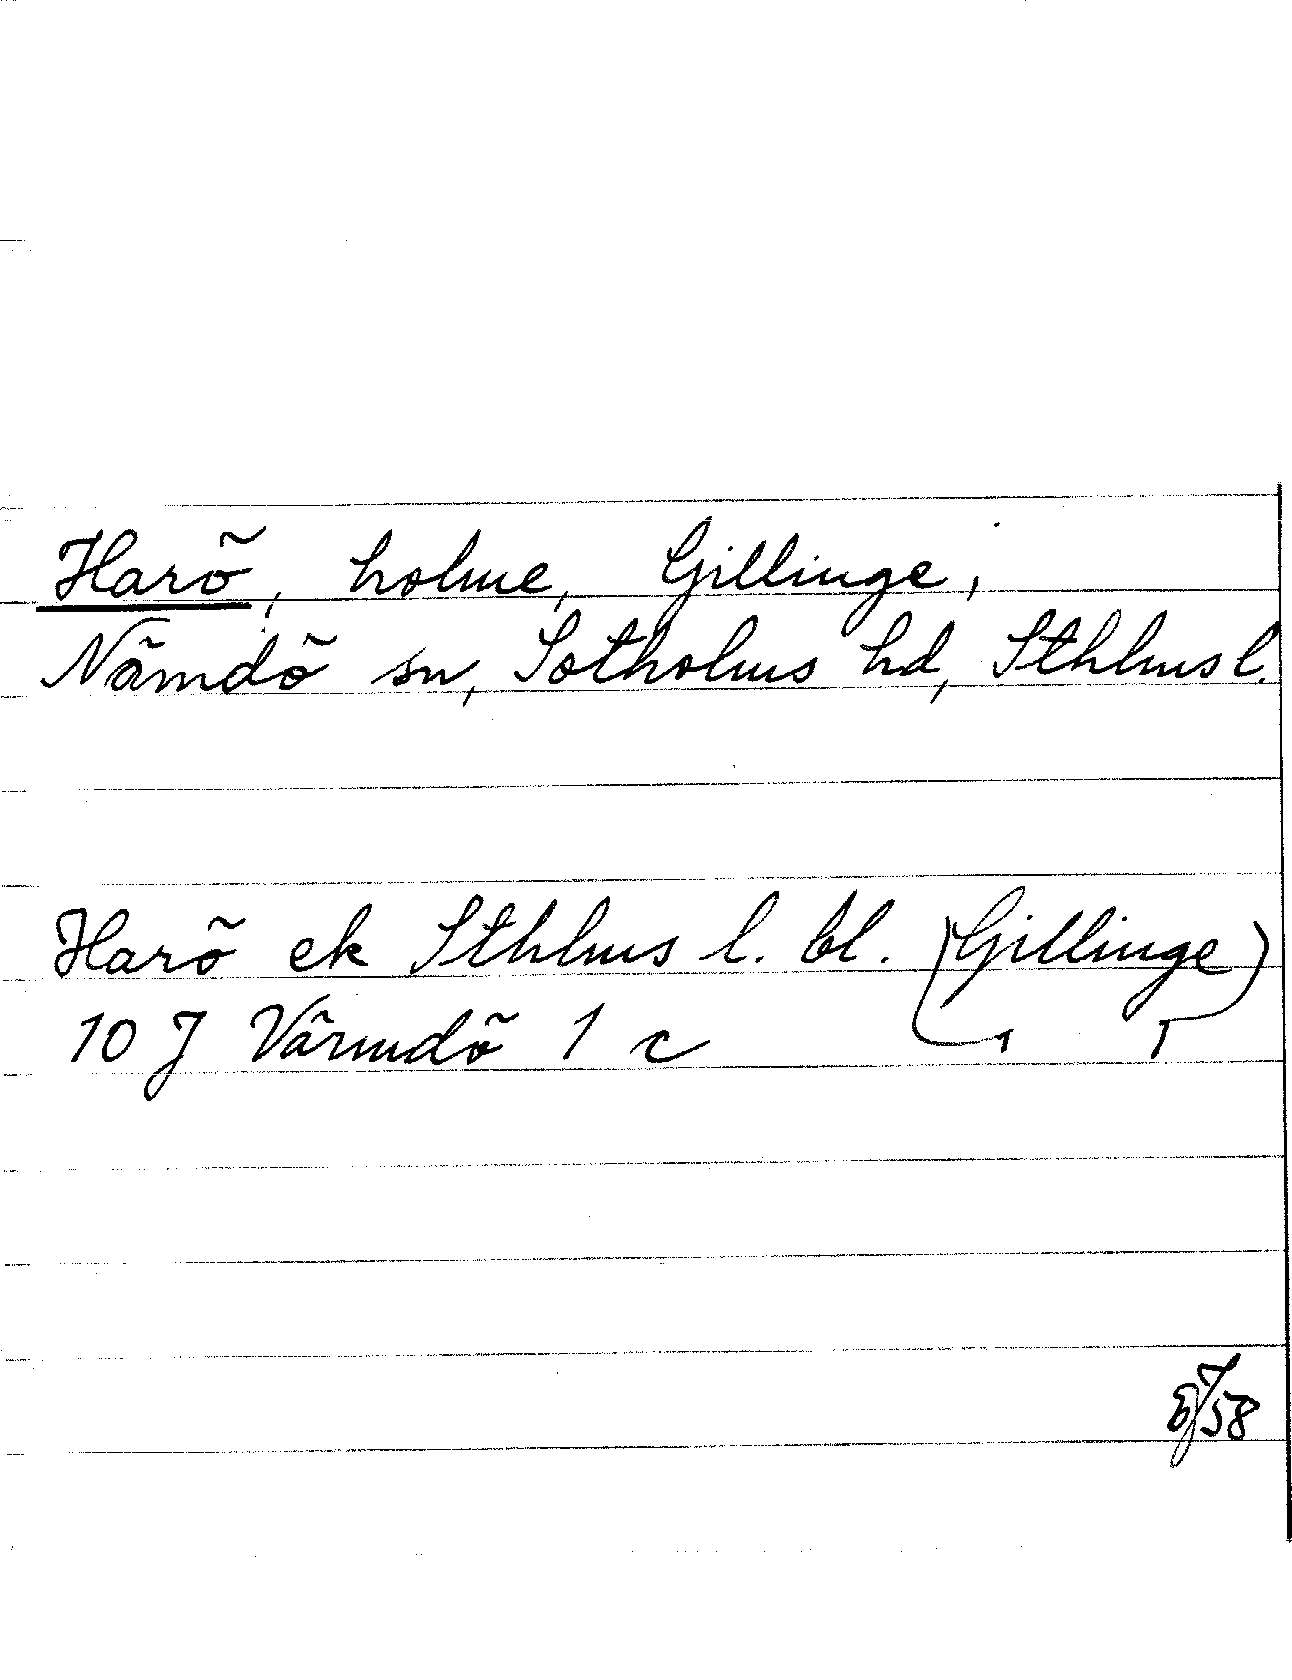 Harö, holme, Gillinge,
Nämdö sn, Sotholms hd, Sthlms l.
Harö ek Sthlms l. bl. (Gillinge)
10 J Värmdö 1 c